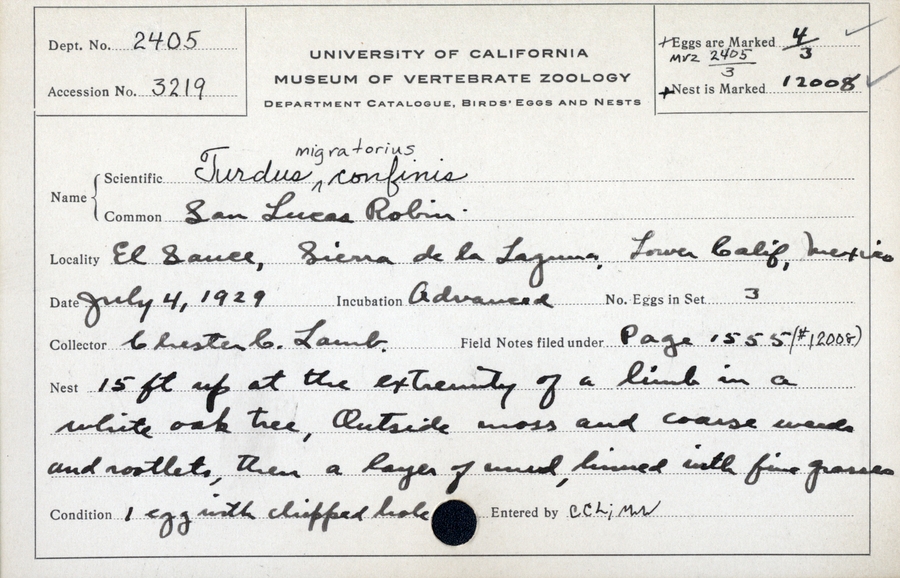 Dept. No. 2405
Accession No. 3219
UNIVERSITY OF CALIFORNIA
MUSEUM OF VERTEBRATE ZOOLOGY
DEPARTMENT CATALOGUE, BIRDS' EGGS AND NESTS
+Eggs are Marked 4/3
MVZ 2405/3
+Nest is Marked 12008
migratorius
Name { Scientific Turdus ^ confinis
Common San Lucas Robin.
Locality El Sauce, Sierra de la Laguna, Lower Calif, Mexico
Date July 4, 1929 Incubation Advanced No. Eggs in Set 3
Collector Chester C. Lamb. Field Notes filed under Page 1555 (#12008)
Nest 15 ft up at the extremity of a limb in a
white oak tree, Outside moss and coarse weeds
and rootlets, then a layer of mud, linned with fine grasses
Condition 1 egg with chipped hole Entered by CCL;